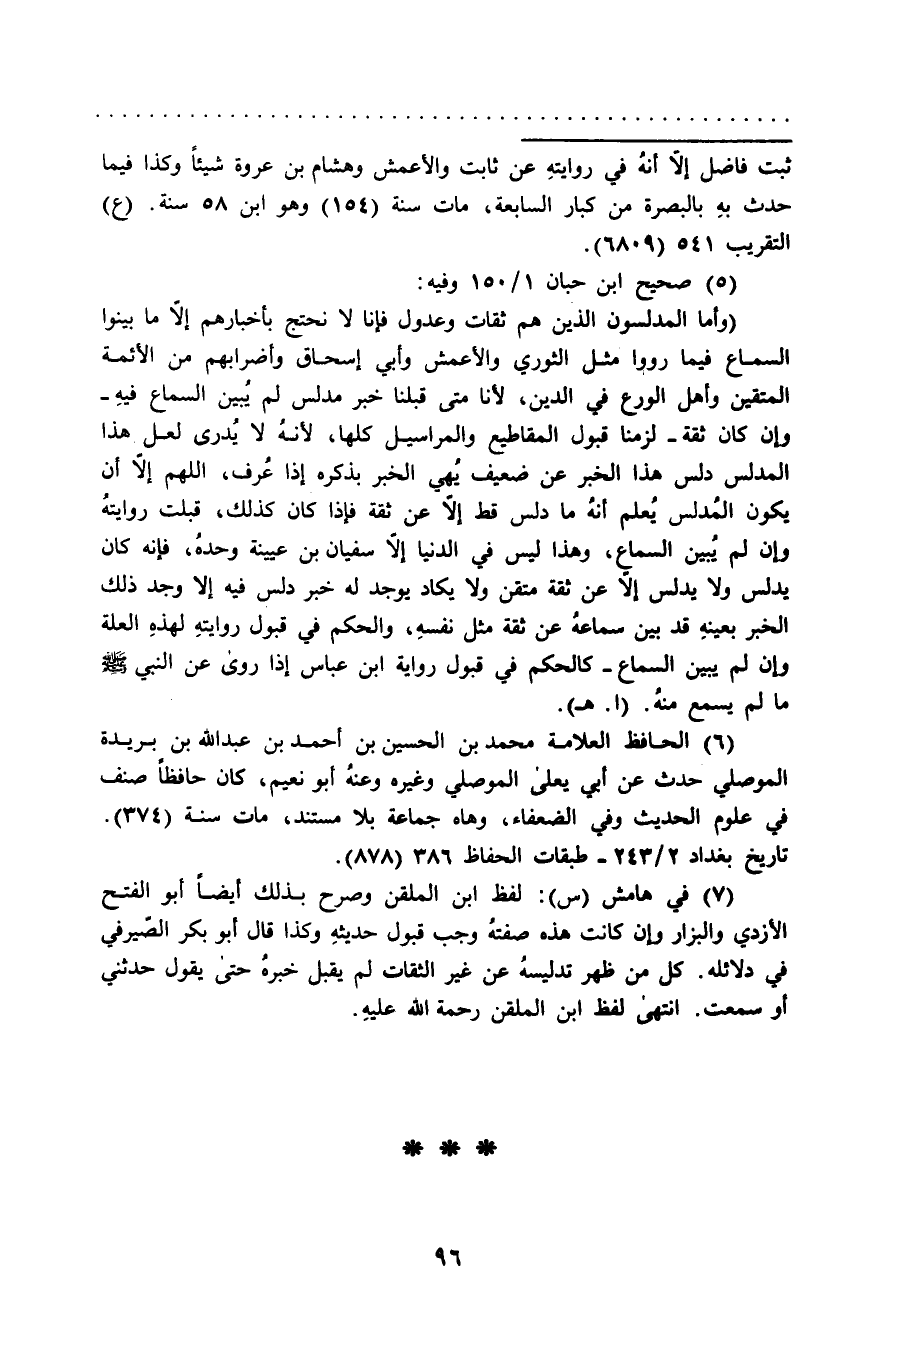 ثبت فاضل إلاّ أنهُ في روايتهِ عن ثابت والأعمش وهشام بن عروة شيئاً وكذا فيما
حدث بهِ بالبصرة من كبار السابعة، مات سنة (١٥٤) وهو ابن ٥٨ سنة. (ع)
التقريب ٥٤١ (٦٨٠٩).
(٥) صحيح ابن حبان ١/ ١٥٠ وفيه:
(وأما المدلسون الذين هم ثقات وعدول فإنا لا نحتج بأخبارهم إلاّ ما بينوا
السماع فيما رووا مثل الثوري والأعمش وأبي إسحاق وأضرابهم من الأئمة
المتقين وأهل الورع في الدين، لأنا متى قبلنا خبر مدلس لم يُبين السماع فيهِ -
وإن كان ثقة - لزمنا قبول المقاطيع والمراسيل كلها، لأنهُ لا يُدرى لعل هذا
المدلس دلس هذا الخبر عن ضعيف يُهي الخبر بذكره إذا عُرف، اللهم إلاّ أن
يكون المُدلس يُعلم أنهُ ما دلس قط إلاّ عن ثقة فإذا كان كذلك، قبلت روايتهُ
وإن لم يُبين السماع، وهذا ليس في الدنيا إلاّ سفيان بن عيينة وحدهُ، فإنه كان
يدلس ولا يدلس إلاّ عن ثقة متقن ولا يكاد يوجد له خبر دلس فيه إلا وجد ذلك
الخبر بعينهِ قد بين سماعهُ عن ثقة مثل نفسهِ، والحكم في قبول روايتهِ لهذهِ العلة
وإن لم يبين السماع - كالحكم في قبول رواية ابن عباس إذا روىٰ عن النبي ﷺ
ما لم يسمع منهُ. (ا. هـ).
(٦) الحافظ العلامة محمد بن الحسين بن أحمد بن عبدالله بن بريدة
الموصلي حدث عن أبي يعلىٰ الموصلي وغيره وعنهُ أبو نعيم، كان حافظاً صنف
في علوم الحديث وفي الضعفاء، وهاه جماعة بلا مستند، مات سنة (٣٧٤).
تاريخ بغداد ٢/ ٢٤٣ - طبقات الحفاظ ٣٨٦ (٨٧٨).
(٧) في هامش (س): لفظ ابن الملقن وصرح بذلك أيضاً أبو الفتح
الأزدي والبزار وإن كانت هذه صفتهُ وجب قبول حديثهِ وكذا قال أبو بكر الصّيرفي
في دلائله. كل من ظهر تدليسهُ عن غير الثقات لم يقبل خبرهُ حتىٰ يقول حدثني
أو سمعت. انتهىٰ لفظ ابن الملقن رحمة الله عليهِ.
* * *
٩٦